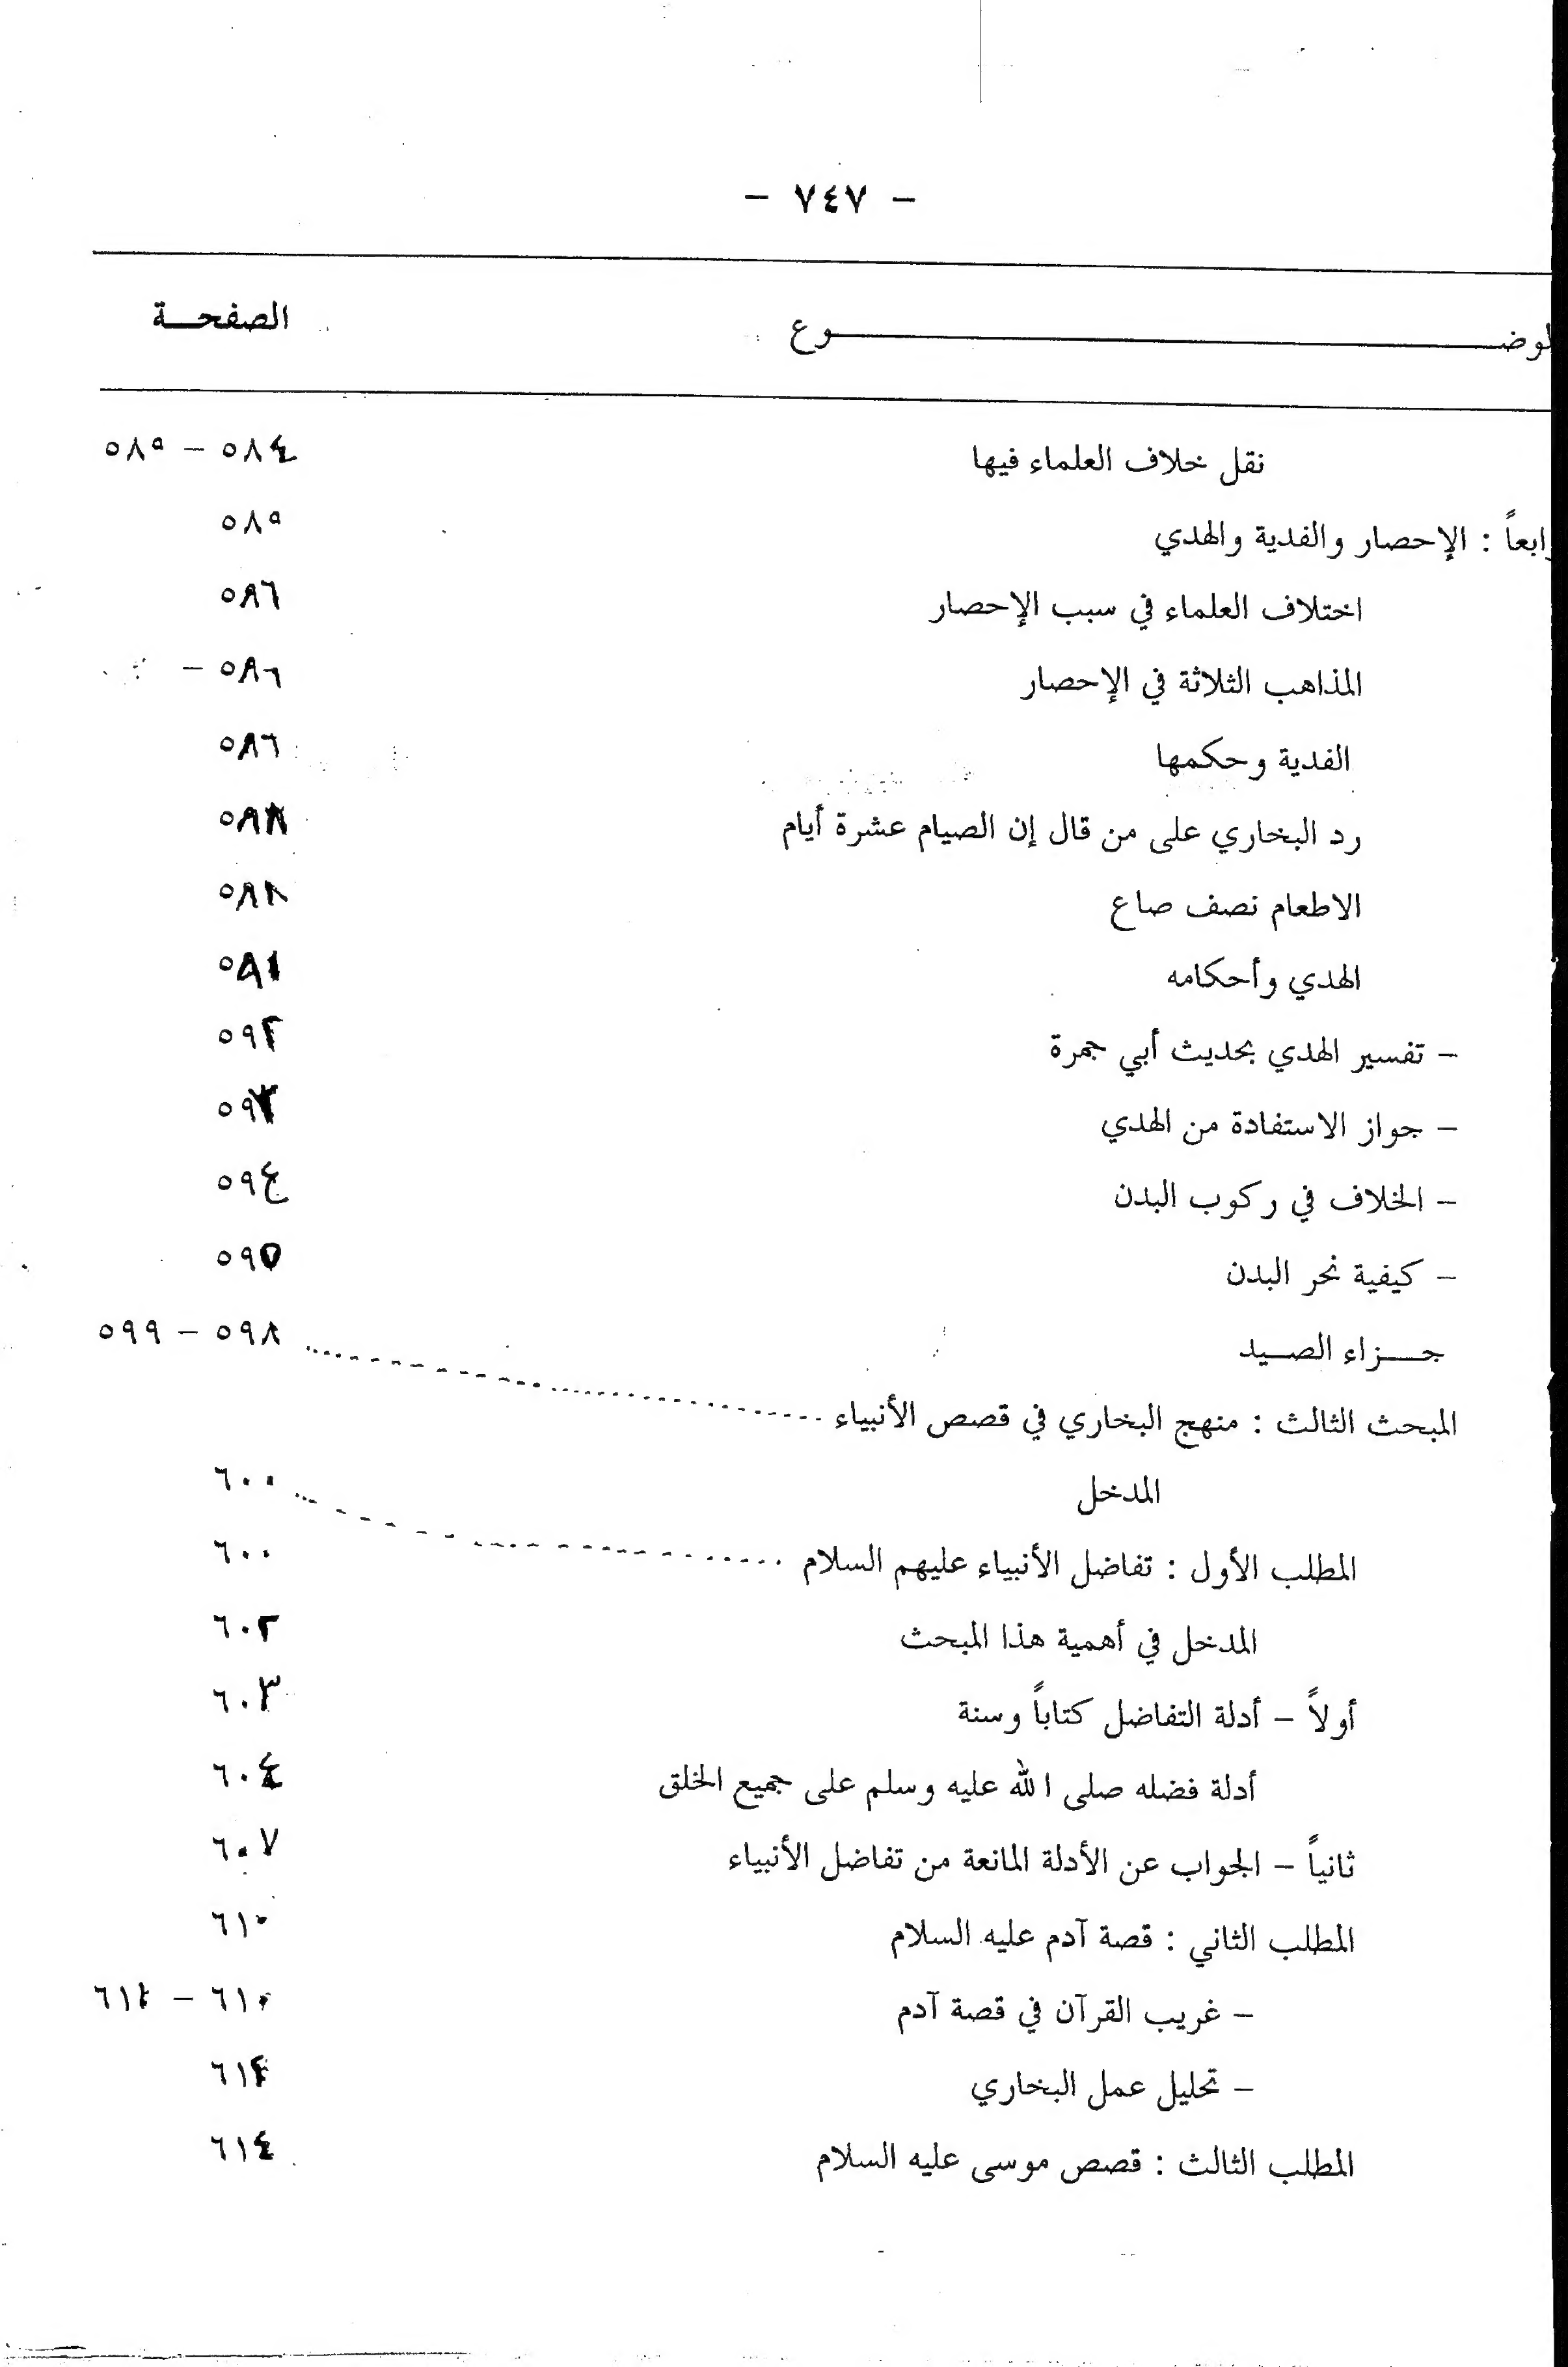 - ٧٤٧ -
لوضـــوع الصفحـــة
نقل خلاف العلماء فيها ٥٨٤ - ٥٨٥
رابعاً : الإحصار والفدية والهدي ٥٨٥
اختلاف العلماء في سبب الإحصار ٥٨٦
المذاهب الثلاثة في الإحصار ٥٨٦ -
الفدية وحكمها ٥٨٦
رد البخاري على من قال إن الصيام عشرة أيام
الاطعام نصف صاع
الهدي وأحكامه
- تفسير الهدي بحديث أبي جمرة ٥٩٢
- جواز الاستفادة من الهدي ٥٩٣
- الخلاف في ركوب البدن ٥٩٤
- كيفية نحر البدن ٥٩٧
جـــزاء الصــيد ٥٩٨ - ٥٩٩
المبحث الثالث : منهج البخاري في قصص الأنبياء
المدخل ٦٠٠
المطلب الأول : تفاضل الأنبياء عليهم السلام ٦٠٠
المدخل في أهمية هذا المبحث ٦٠٢
أولاً - أدلة التفاضل كتاباً وسنة ٦٠٣
أدلة فضله صلى الله عليه وسلم على جميع الخلق ٦٠٤
ثانياً - الجواب عن الأدلة المانعة من تفاضل الأنبياء ٦٠٧
المطلب الثاني : قصة آدم عليه السلام ٦١٠
- غريب القرآن في قصة آدم ٦١٠ -
- تحليل عمل البخاري ٦١٤
المطلب الثالث : قصص موسى عليه السلام ٦١٤